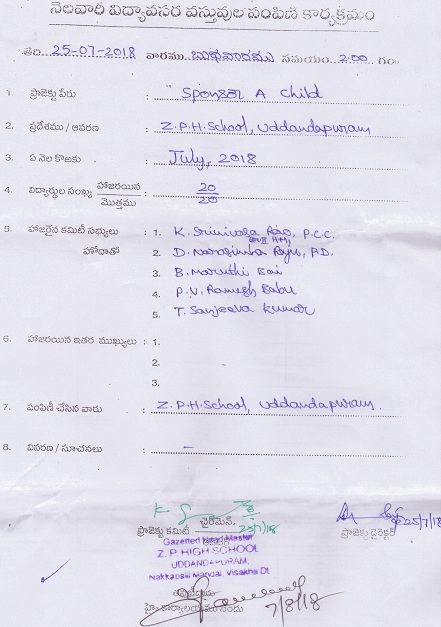 నెలవారీ విద్యావసర వస్తువుల పంపిణీ కార్యక్రమం
తేది 25-07-2018 వారము బుధవారము సమయం 2.00 గం
1 ప్రాజెక్టు పేరు : "Sponsor A Child
2. ప్రదేశము / ఆవరణ : Z.P.H.School, Uddandapuram
3. ఏ నెల కొఱకు : July, 2018
4. విద్యార్థుల సంఖ్య హాజరయిన 20
మొత్తము 20
5. హాజరైన కమిటీ సభ్యులు : 1. K. Srinivasa Rao, P.C.C.
హోదాతో 2. D. Narasimha Raju, P.D.
3. B. Maruthi Bai
4. P.V. Ramesh Babu
5. T. Sanjeeva Kumar
6. హాజరయిన ఇతర ముఖ్యులు : 1.
2.
3.
7. పంపిణీ చేసిన వారు : Z.P.H.School, Uddandapuram.
8. వివరణ / సూచనలు : –
ప్రాజెక్టు కమిటీ ఛైర్మెన్ 25/7/18
ప్రాజెక్టు డైరెక్టర్ 25/7/18
Gazetted Head Master
Z. P HIGH SCHOOL
UDDANDAPURAM,
Nakkapalli Mandal, Visakha Dt
హె కార్యాలయము నందు 7/8/18